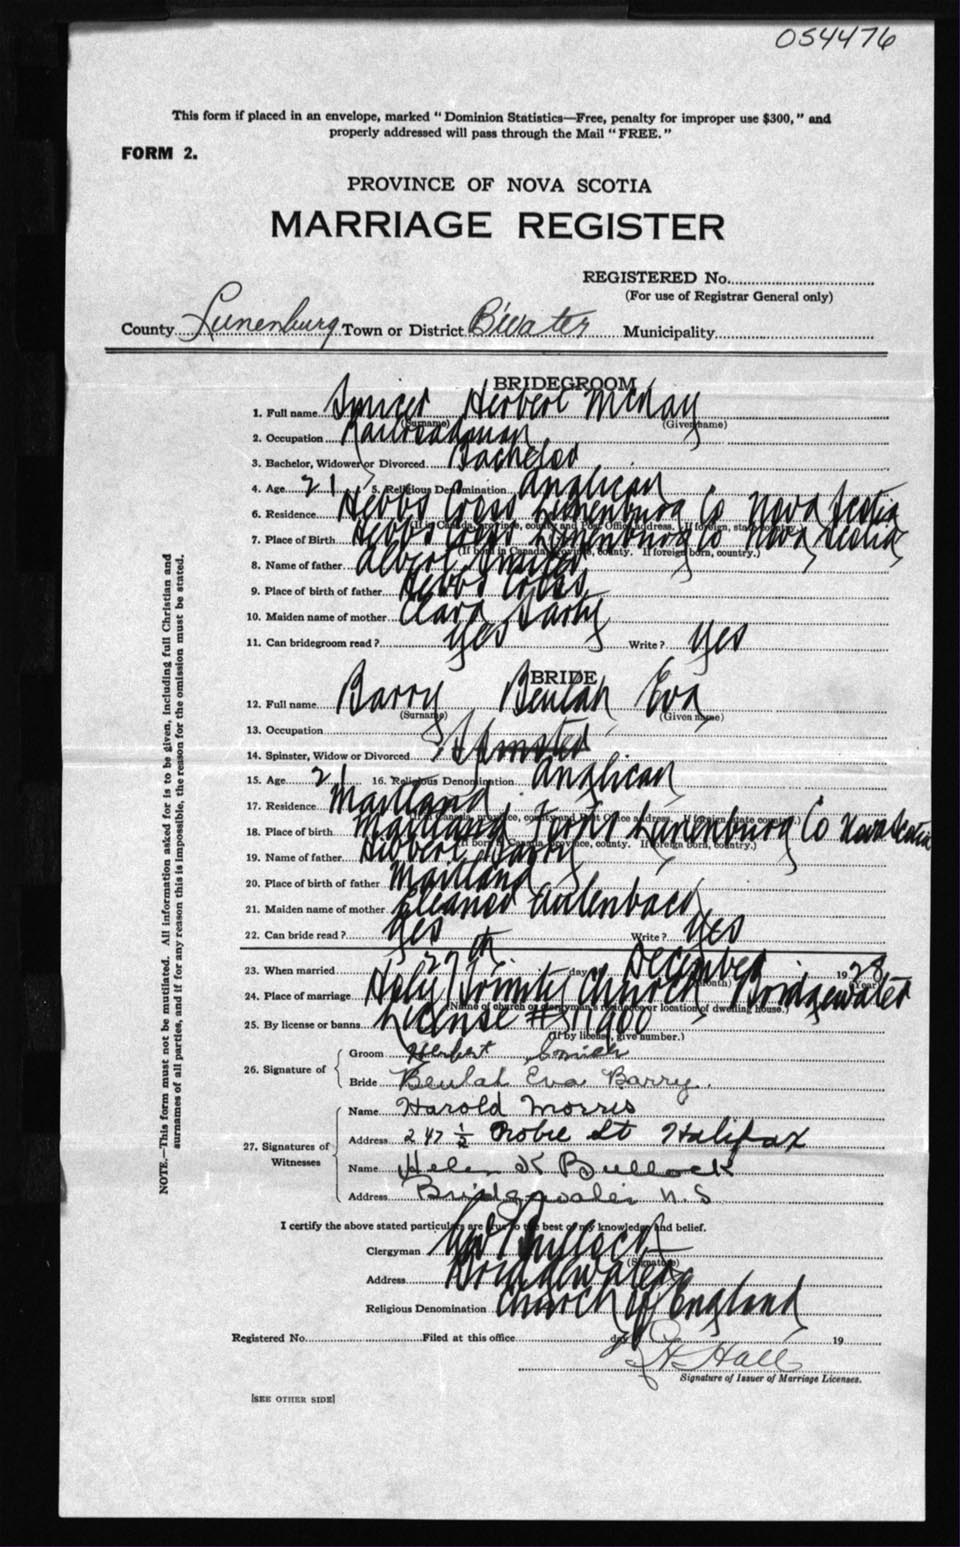 054476
This form if placed in an envelope, marked "Dominion Statistics—Free, penalty for improper use $300," and
properly addressed will pass through the Mail "FREE."
FORM 2.
PROVINCE OF NOVA SCOTIA
MARRIAGE REGISTER
REGISTERED No.
(For use of Registrar General only)
County Lunenburg Town or District B'Water Municipality
BRIDEGROOM
1. Full name Herbert McKay
(Surname) (Given name)
2. Occupation Railroadman
3. Bachelor, Widower or Divorced Bachelor
4. Age 21 5. Religious Denomination Anglican
6. Residence Hebbs Cross Lunenburg Co Nova Scotia
(If in Canada, province, county and Post Office address. If foreign, state country.)
7. Place of Birth Hebbs Cross Lunenburg Co Nova Scotia
(If born in Canada, province, county. If foreign born, country.)
8. Name of father Albert
9. Place of birth of father Hebbs Cross
10. Maiden name of mother Clara Sarty
11. Can bridegroom read? Yes Write? Yes
BRIDE
12. Full name Barry Beulah Eva
(Surname) (Given name)
13. Occupation
14. Spinster, Widow or Divorced Spinster
15. Age 21 16. Religious Denomination Anglican
17. Residence Maitland
(If in Canada, province, county and Post Office address. If foreign state country.)
18. Place of birth Maitland Forks Lunenburg Co Nova Scotia
(If born in Canada, province, county. If foreign born, country.)
19. Name of father Hibbert Barry
20. Place of birth of father Maitland
21. Maiden name of mother Eleanor Aulenbach
22. Can bride read? Yes Write? Yes
23. When married 27th day December 1928
(Month) (Year)
24. Place of marriage Holy Trinity Church Bridgewater
(Name of church or clergyman's residence or location of dwelling house.)
25. By license or banns License # 11900
(If by license, give number.)
26. Signature of
Groom Herbert
Bride Beulah Eva Barry.
27. Signatures of Witnesses
Name Harold Morris
Address 247 ½ Robie St Halifax
Name Helen K Bullock
Address Bridgewater N.S
I certify the above stated particulars are true to the best of my knowledge and belief.
Clergyman Bullock
(Signature)
Address Bridgewater
Religious Denomination Church of England
Registered No. Filed at this office day 19
Hall
Signature of Issuer of Marriage Licenses.
[SEE OTHER SIDE]
NOTE.—This form must not be mutilated. All information asked for is to be given, including full Christian and
surnames of all parties, and if for any reason this is impossible, the reason for the omission must be stated.